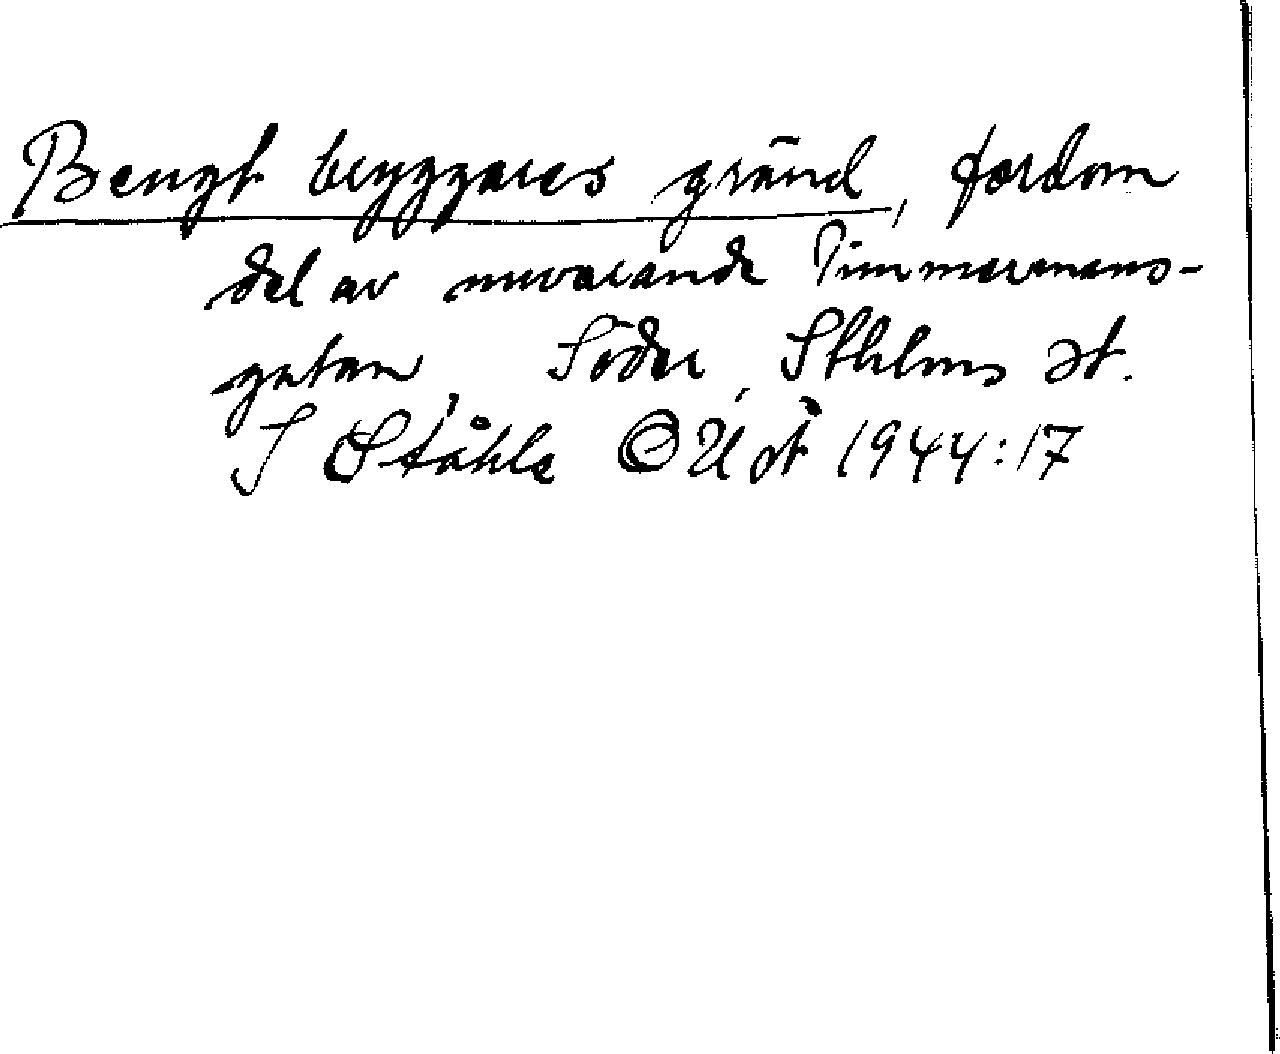 Bengt bryggares gränd, fordom
del av nuvarande Timmermans-
gatan, Söder, Sthlms st.
S Ståhle OUÅ 1944:17